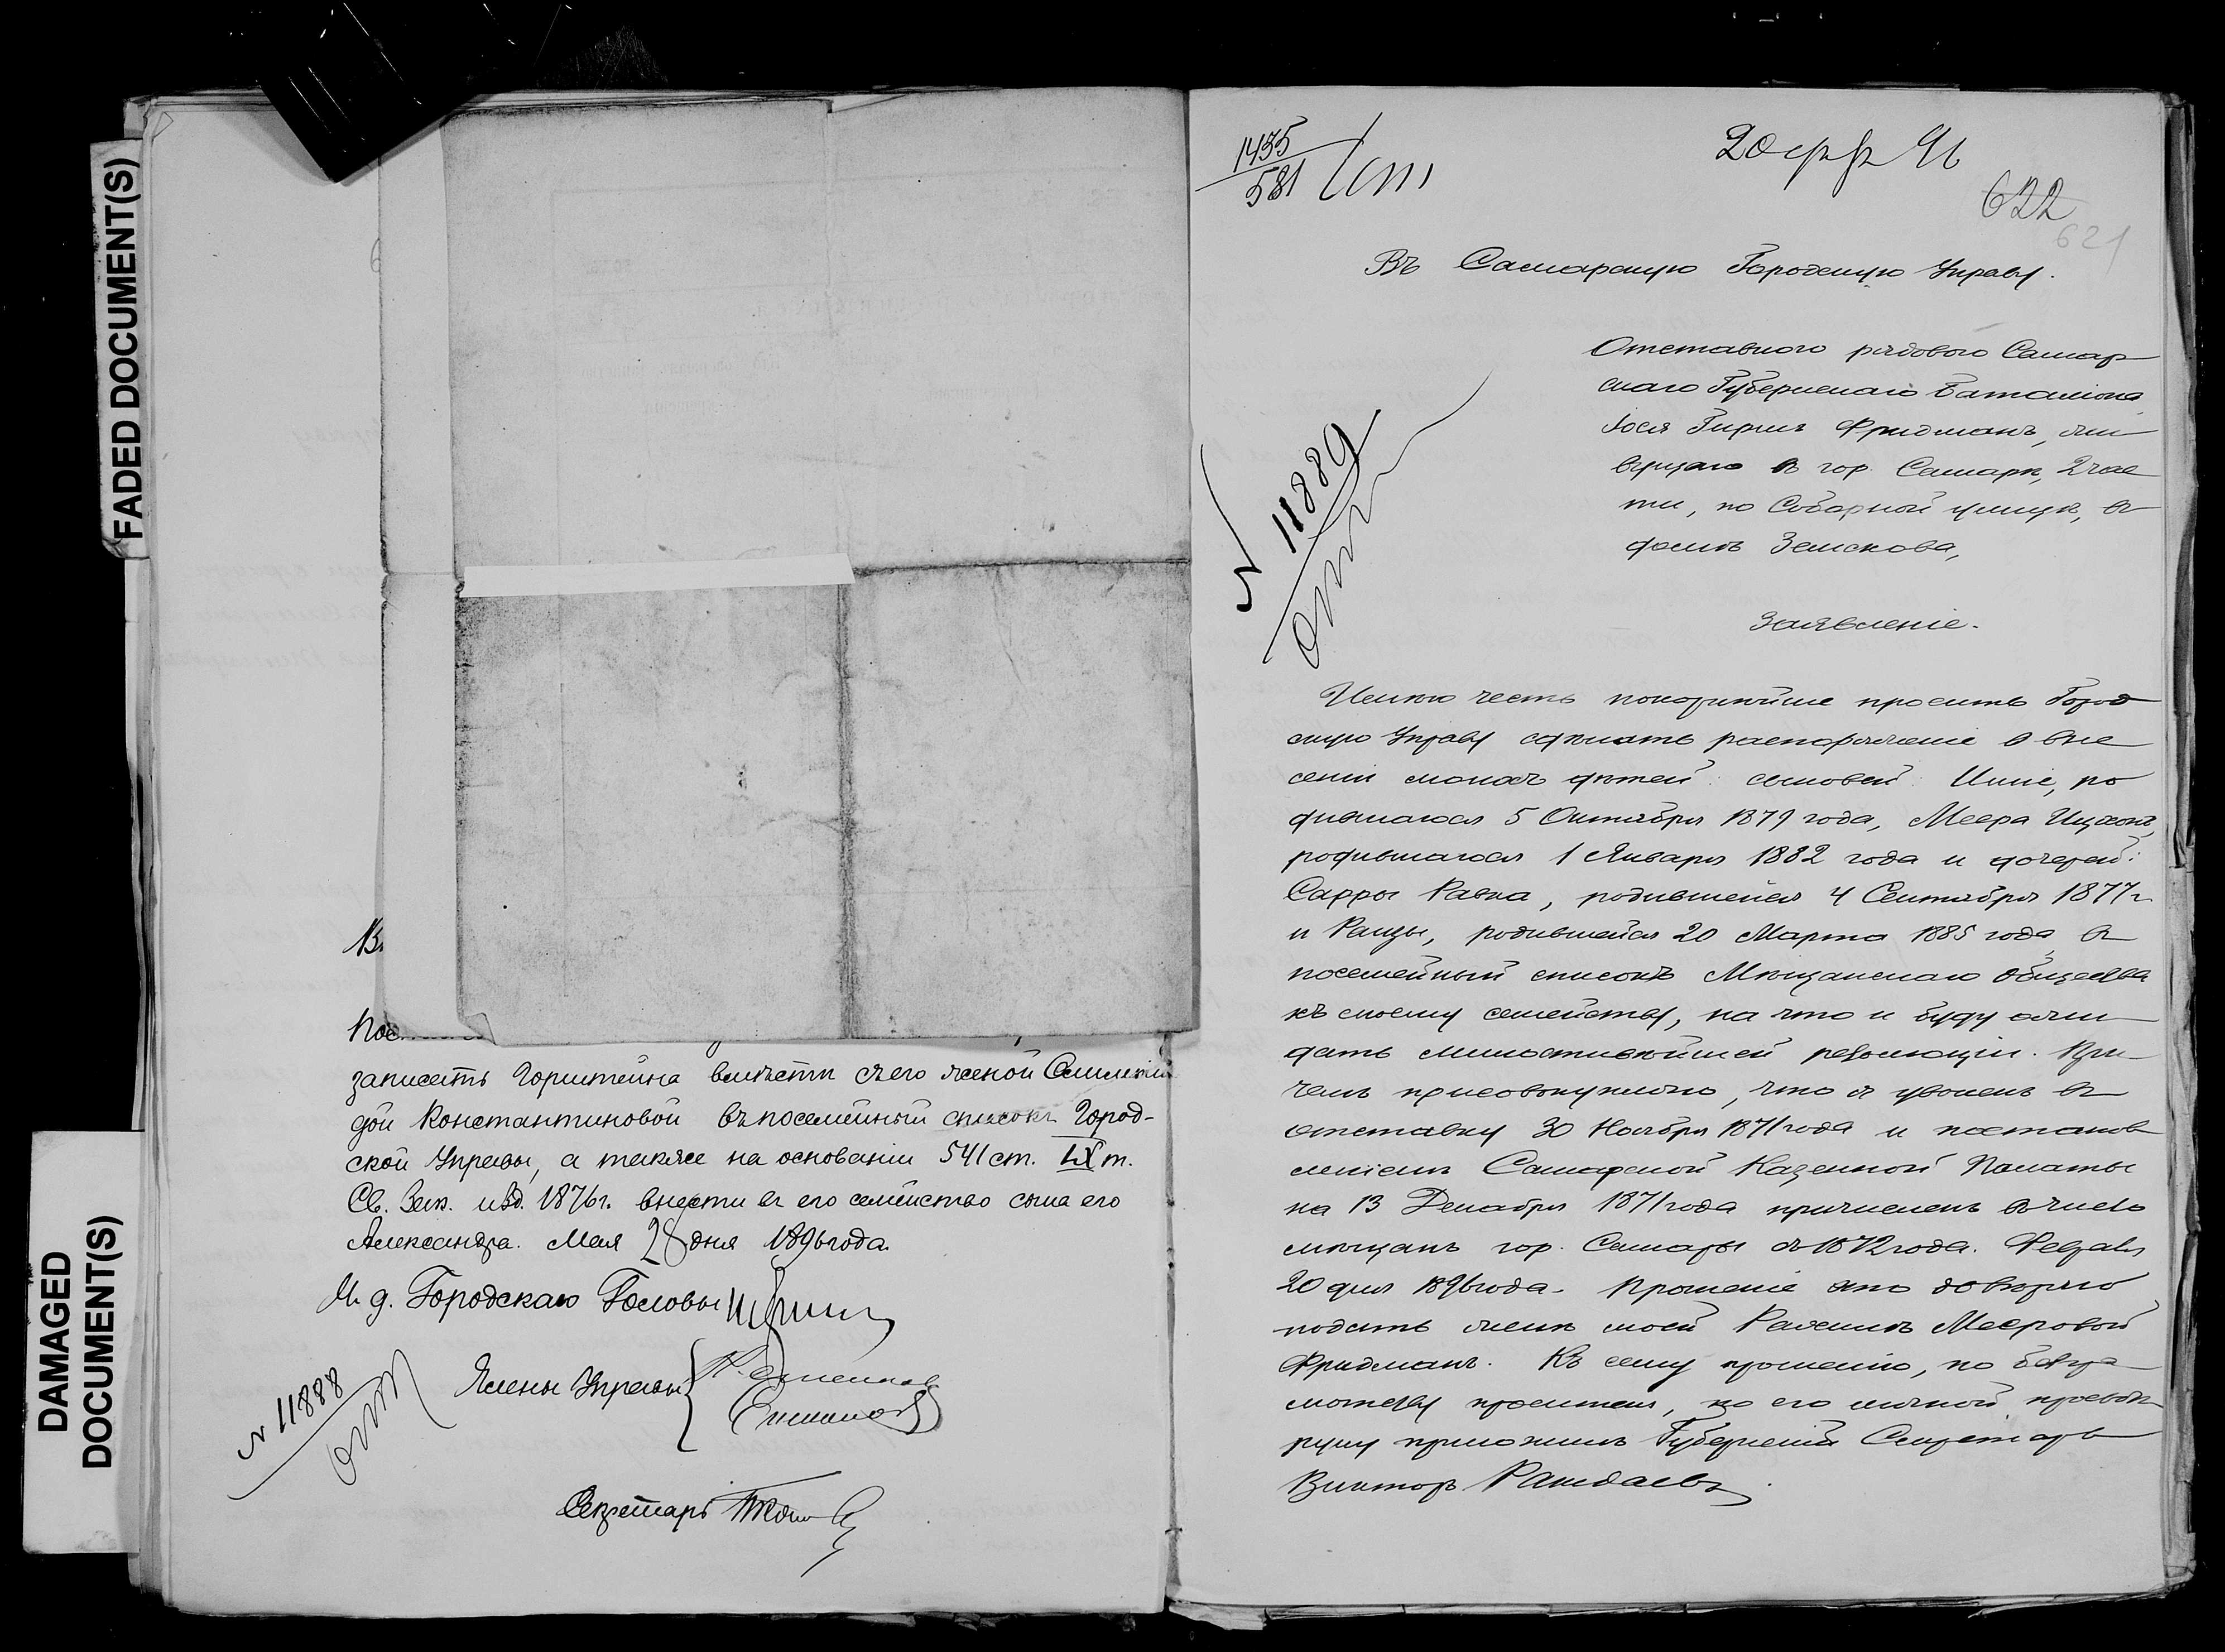 FADED DOCUMENT(S)
DAMAGED
DOCUMENT(S)
записать Горштейна вместе съ его женой
дой Константиновой въ посемейный списокъ Город-
ской Управы, а также на основаніи 541 ст. IX т.
Св. Зак. изд. 1876 г. внести въ его семейство сына его
Александра. Мая 28 дня 1896 года.
И. д. Городскаго Головы
Члены Управы
N 11888
Секретарь
1435
581
20 фвр 96
622
621
Въ Самарскую Городскую Управу.
N 11889
Отставного рядового Самар
скаго Губернскаго Баталіона
Іося Гирша Фридманъ, жи
вущаго в гор. Самаре, 2 час
ти, по Соборной улице, в
доме Земскова,
Заявленіе.
Имею честь покорнейше просить Город
скую Управу сделать распоряженіе о вне
сеніи моихъ детей: сыновей: ро
дившагося 5 Октября 1879 года, Меера Ицхока,
родившагося 1 Января 1882 года и дочерей:
Сарры Равка, родившейся 4 Сентября 1877 г.
и Раизы, родившейся 20 Марта 1885 года в
посемейный списокъ Мещанскаго Общества
къ моему семейству, на что и буду ожи
дать милостивейшей резолюціи. При
чемъ присовокупляю, что я уволенъ в
отставку 30 Ноября 1871 года и постанов
леніемъ Самарской Казенной Палаты
на 13 Декабря 1871 года причисленъ в число
мещанъ гор. Самары съ 1872 года. Февраля
20 дня 1896 года. Прошеніе это доверяю
подать жене моей Мееровой
Фридманъ. Къ сему прошенію, по безгра
мотству просителя, по его личной прозьбе
руку приложилъ Губернскій Секретарь
Викторъ